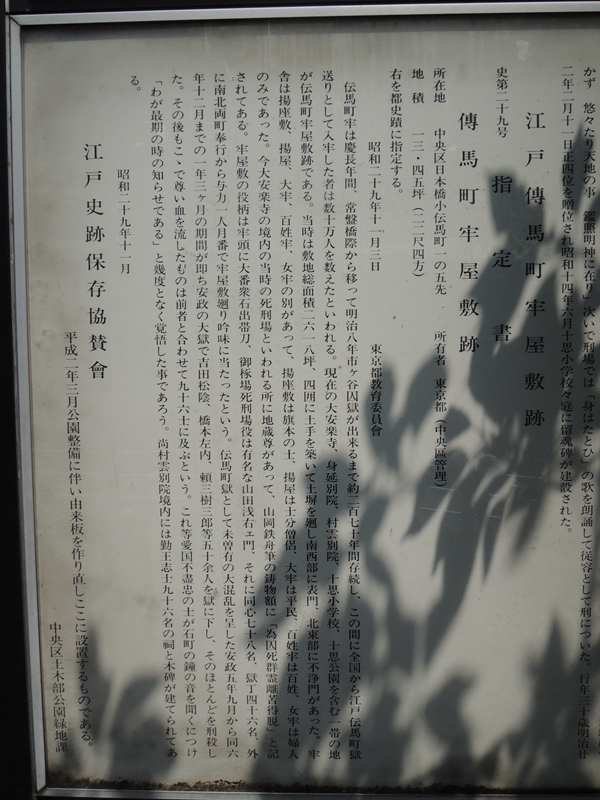 かず 悠々たり天地の事 鑑照明神に在り」次いで刑場では「身はたとひ」の歌を朗誦して従容として刑についた。行年三十歳明治廿
二年二月十一日正四位を贈位され昭和十四年六月十思小学校々庭に留魂碑が建設された。
江戸傳馬町牢屋敷跡
史第二十九号 指定書
傳馬町牢屋敷跡
所在地 中央区日本橋小伝馬町一の五先 所有者 東京都(中央區管理)
地積 一三・四五坪(二二尺四方)
右を都史蹟に指定する。
昭和二十九年十一月三日 東京都教育委員會
伝馬牢は慶長年間、常盤橋際から移って明治八年市ヶ谷囚獄が出来るまで約二百七十年間存続し、この間に全国から江戸伝馬町獄
送りとして入牢した者は数十万人を数えたといわれる。現在の大安楽寺、身延別院、村雲別院、十思小学校、十思公園を含む一帯の地
が伝馬町牢屋敷跡である。当時は敷地総面積二六一八坪、四囲に土手を築いて土塀を廻し南西部に表門、北東部に不浄門があった。牢
舎は揚座敷、揚屋、大牢、百姓牢、女牢の別があって、揚座敷は旗本の士、揚屋は士分僧侶、大牢は平民、百姓牢は百姓、女牢は婦人
のみであった。今大安楽寺の境内の当時の死刑場といわれる所に地蔵尊があって、山岡鉄舟筆の鋳物額に「為囚死群霊離苦得脱」と記
されてある。牢屋敷の役柄は牢頭に大番衆石出帯刀、御椓場死刑場役は有名な山田浅右エ門、それに同心七十八名、獄丁四十六名、外
に南北両町奉行から与力一人月番で牢屋敷廻り吟味に当たったという。伝馬町獄として未曽有の大混乱を呈した安政五年九月から同六
年十二月までの一年三ヶ月の期間が即ち安政の大獄で吉田松陰、橋本左内、頼三樹三郎等五十余人を獄に下し、そのほとんどを刑殺し
た。その後もこゝで尊い血を流したものは前者と合わせて九十六士に及ぶという。これ等愛国不盡忠の士が石町の鐘の音を聞くにつけ
「わが最期の時の知らせである」と幾度となく覚悟した事であろう。尚村雲別院境内には勤王志士九十六名の祠と木碑が建てられてあ
る。
昭和二十九年十一月
江戸史跡保存協賛會
平成二年三月公園整備に伴い由来板を作り直しここに設置するものである。
中央区土木部公園緑地課